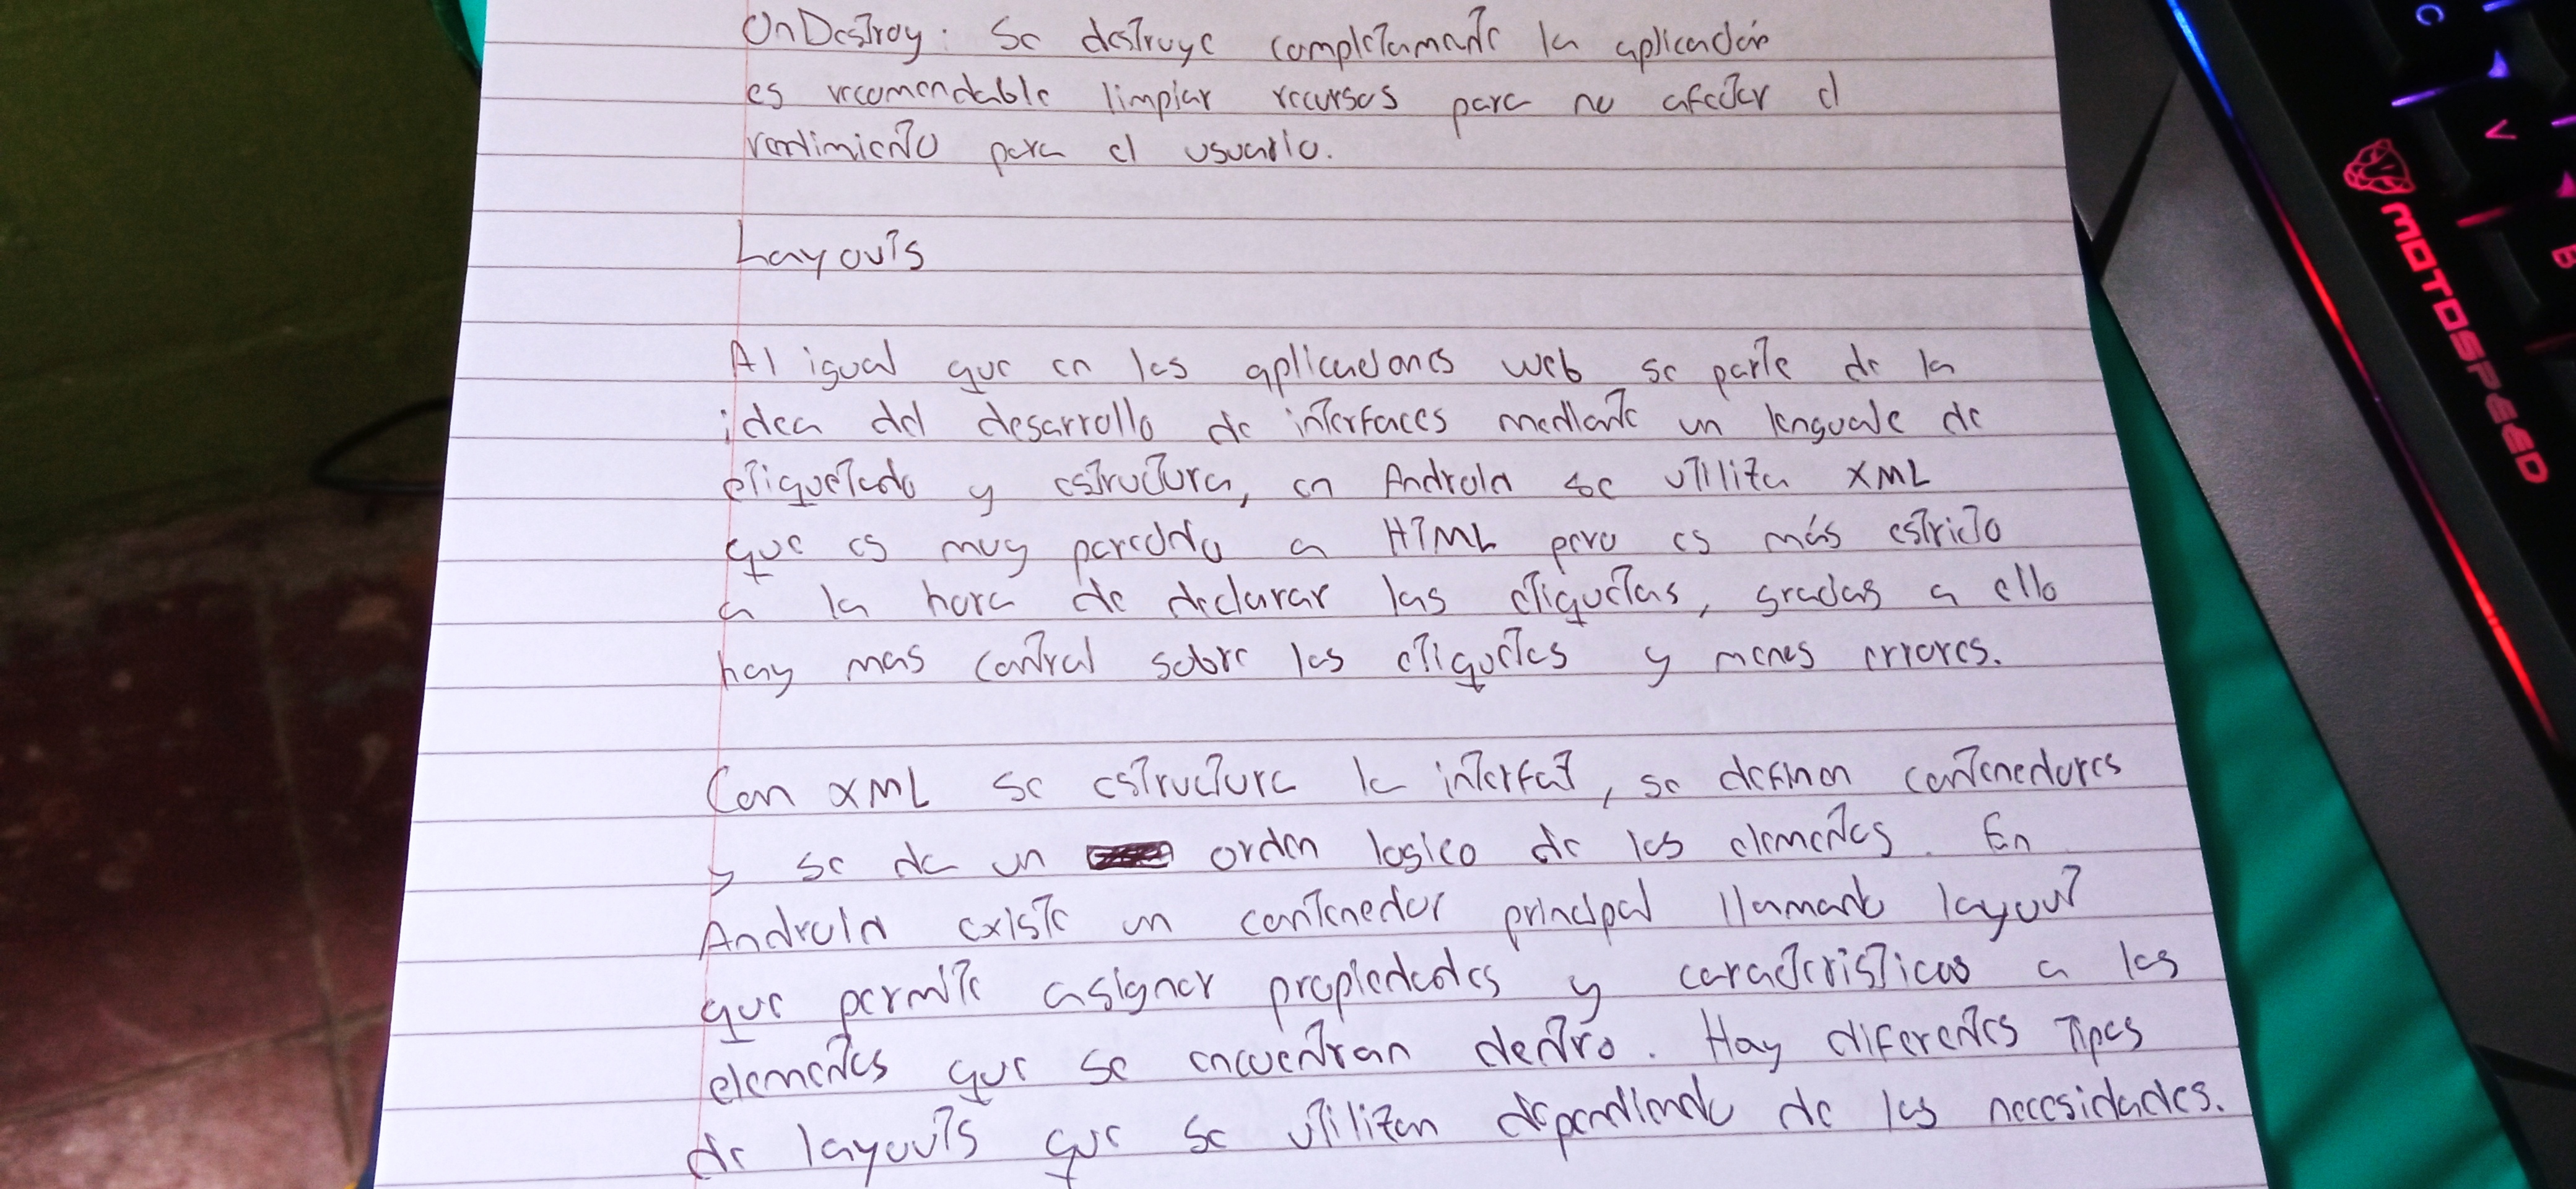 OnDestroy: Se destruye completamente la aplicación
es recomendable limpiar recursos para no afectar el
rendimiento para el usuario.
Layouts
Al igual que en las aplicaciones web se parte de la
idea del desarrollo de interfaces mediante un lenguaje de
etiquetado y estructura, en Android se utiliza XML
que es muy parecido a HTML pero es más estricto
a la hora de declarar las etiquetas, gracias a ello
hay mas control sobre las etiquetas y menos errores.
Con XML se estructura la interfaz, se definen contenedores
y se da un orden logico de los elementos. En
Android existe un contenedor principal llamado layout
que permite asignar propiedades y caracteristicas a los
elementos que se encuentran dentro. Hay diferentes tipos
de layouts que se utilizan dependiendo de las necesidades.
MOTOSPEED
C
V
B